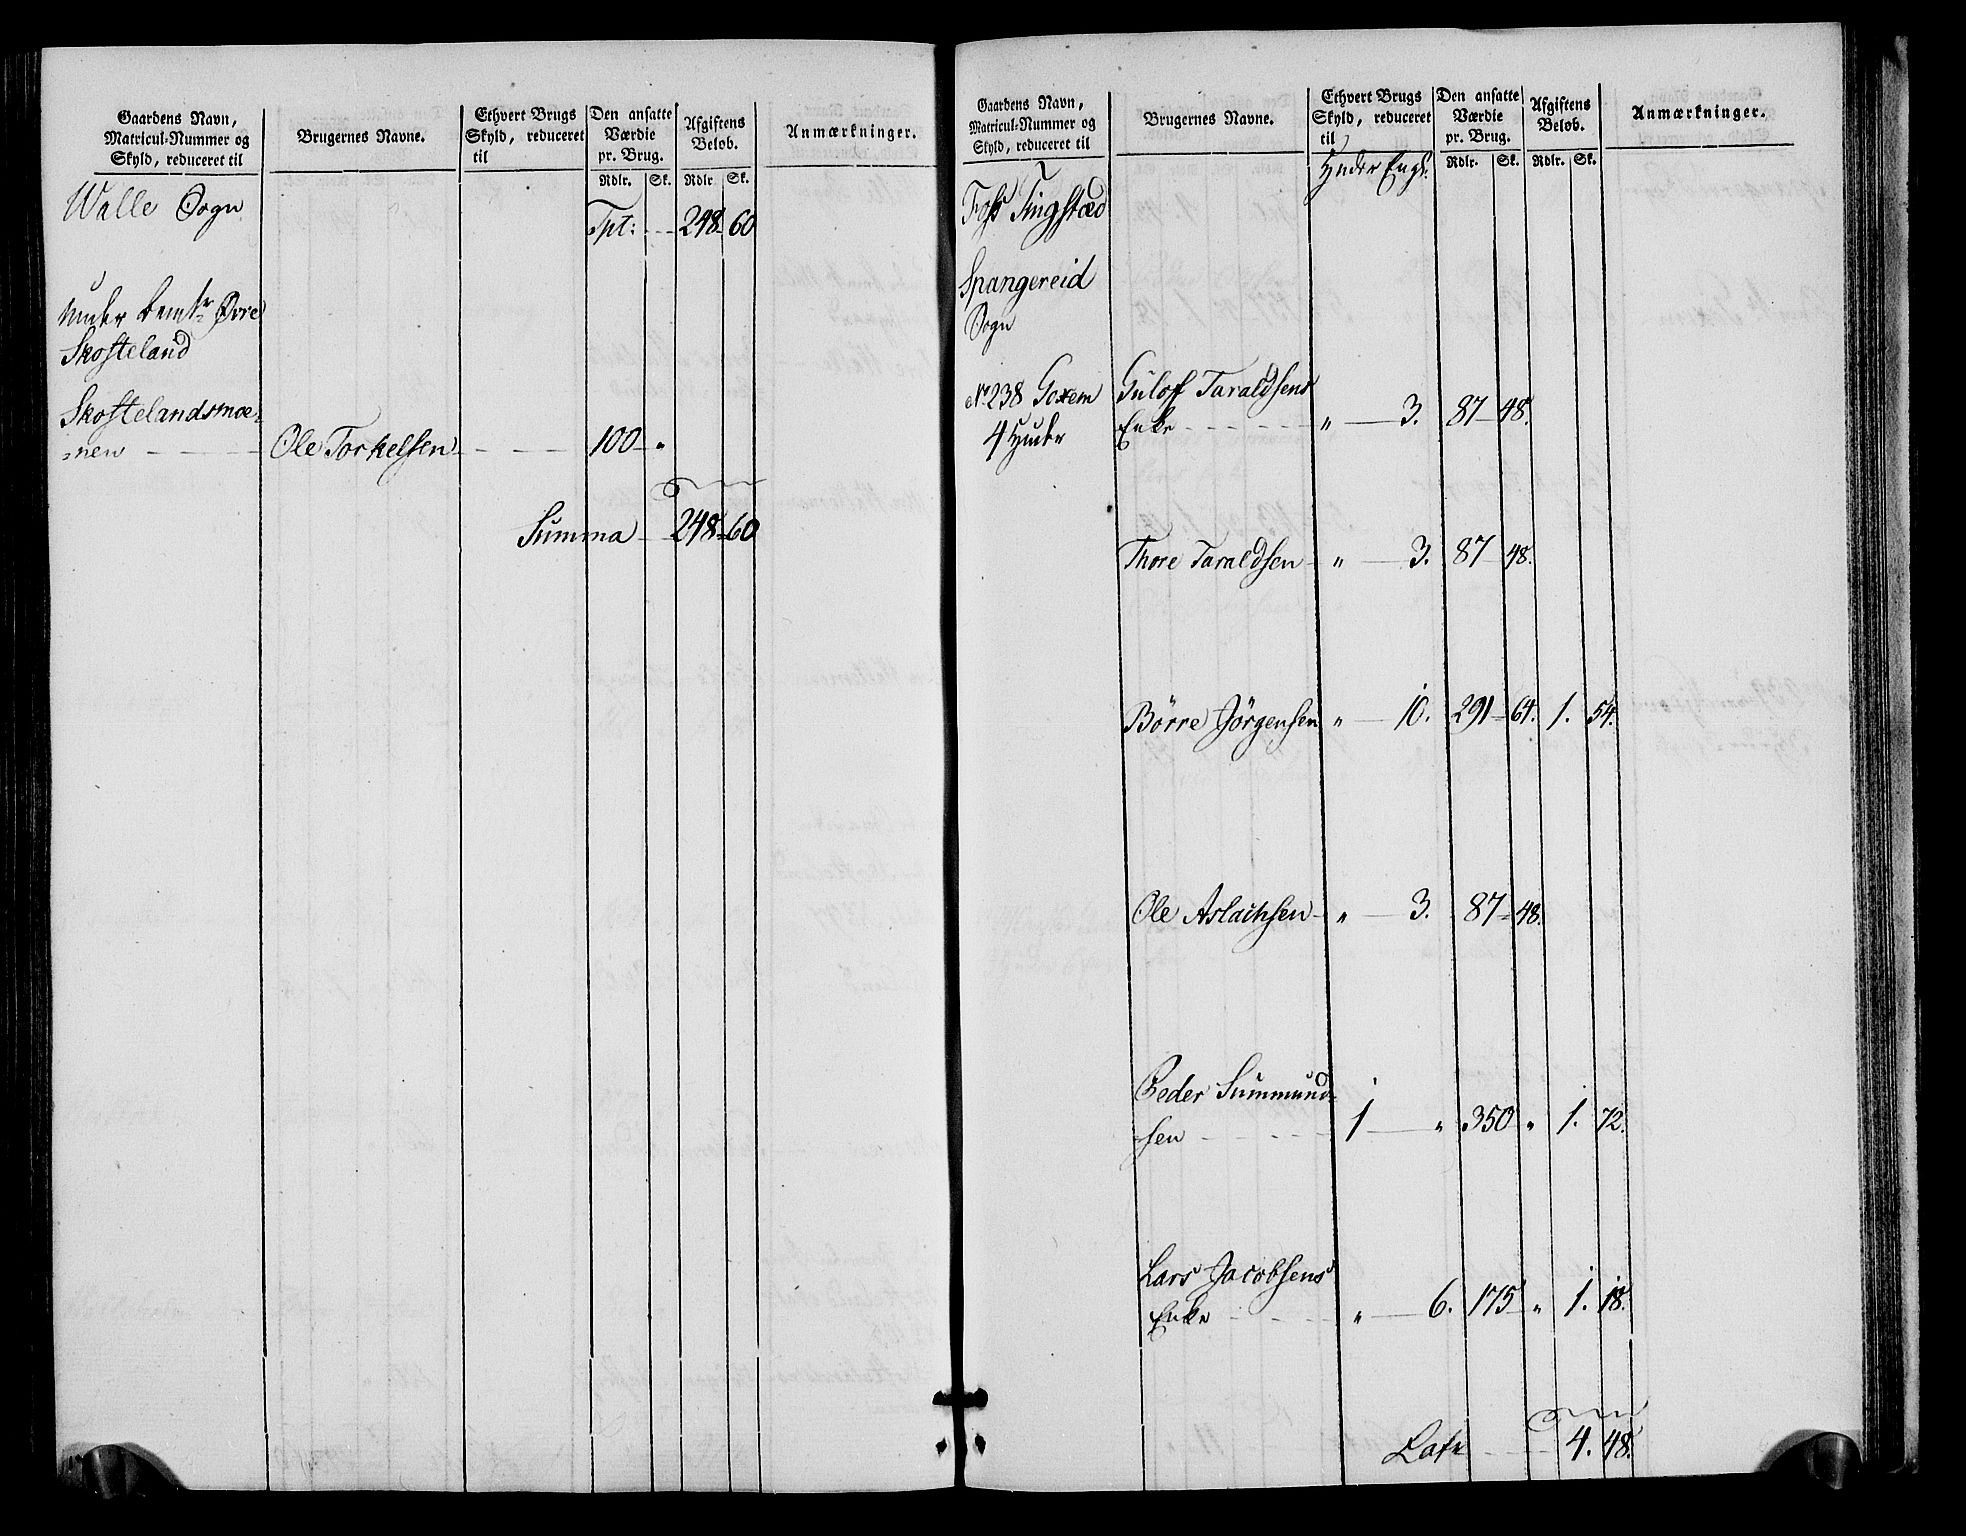 Gaardens Navn, Matricul-Nummer og Skyld, reduceret til
Brugernes Navne.
Ethvert Brugs Skyld, reduceret til
Den ansatte Værdie pr. Brug.
Rdlr. Sk.
Afgiftens Beløb.
Rdlr. Sk.
Anmærkninger.
Walle Sogn
Tpt: 248 60
under Øvre
Skofteland
Skoftelandsmoe-
-nen Ole Torkelsen 100 "
Summa 248 60
Gaardens Navn, Matricul-Nummer og Skyld, reduceret til
Brugernes Navne.
Ethvert Brugs Skyld, reduceret til
Den ansatte Værdie pr. Brug.
Rdlr. Sk.
Afgiftens Beløb.
Rdlr. Sk.
Anmærkninger.
Huder Engl.
Foss Tingstæd
Spangereid
Sogn
No 238 Goxem Guloff Taraldsens
4 Huder Enke " 3. 87 48.
Thore Taraldsen " 3. 87 48.
Børre Jörgensen " 10. 291 64. 1. 54.
Ole Aslachsen " 3. 87 48.
Peder Summund-
sen 1 " 350 " 1. 72.
Lars Jacobsens
Enke " 6. 175 " 1. 18.
Latr 4. 48.